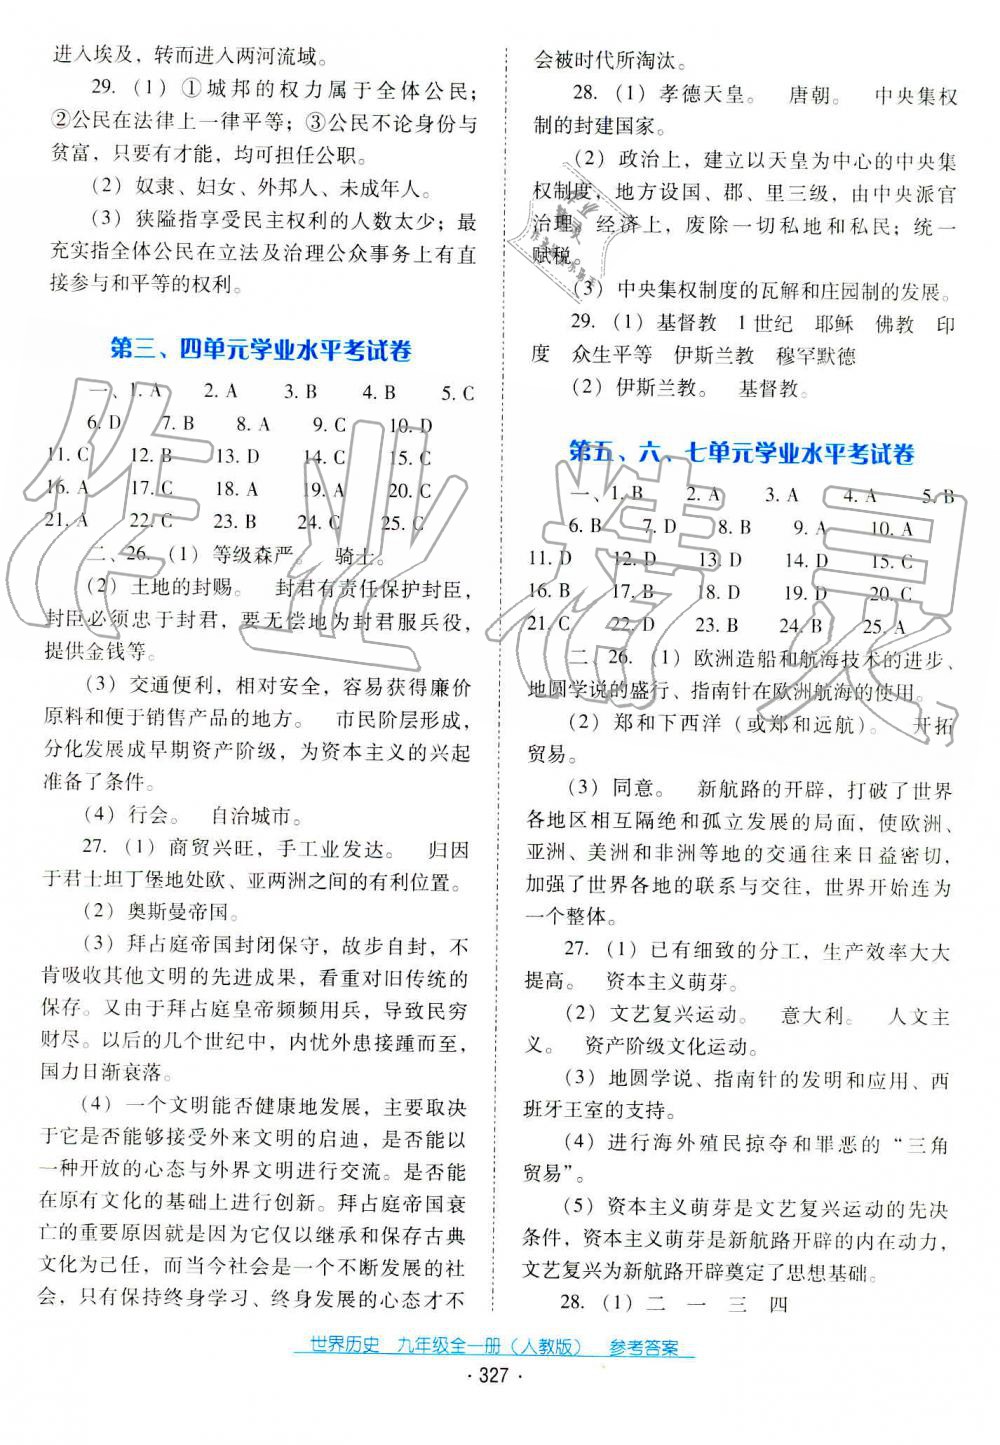 进入埃及，转而进入两河流域。
29.（1）①城邦的权力属于全体公民；
②公民在法律上一律平等；③公民不论身份与
贫富，只要有才能，均可担任公职。
（2）奴隶、妇女、外邦人、未成年人。
（3）狭隘指享受民主权利的人数太少；最
充实指全体公民在立法及治理公众事务上有直
接参与和平等的权利。
第三、四单元学业水平考试卷
一、1. A 2. A 3. B 4. B 5. C
6. D 7. B 8. A 9. C 10. D
11. C 12. B 13. D 14. C 15. C
16. A 17. C 18. A 19. A 20. C
21. A 22. C 23. B 24. C 25. C
二、26.（1）等级森严。 骑士。
（2）土地的封赐。 封君有责任保护封臣，
封臣必须忠于封君，要无偿地为封君服兵役，
提供金钱等。
（3）交通便利，相对安全，容易获得廉价
原料和便于销售产品的地方。 市民阶层形成，
分化发展成早期资产阶级，为资本主义的兴起
准备了条件。
（4）行会。 自治城市。
27.（1）商贸兴旺，手工业发达。 归因
于君士坦丁堡地处欧、亚两洲之间的有利位置。
（2）奥斯曼帝国。
（3）拜占庭帝国封闭保守，故步自封，不
肯吸收其他文明的先进成果，看重对旧传统的
保存。又由于拜占庭皇帝频频用兵，导致民穷
财尽。以后的几个世纪中，内忧外患接踵而至，
国力日渐衰落。
（4）一个文明能否健康地发展，主要取决
于它是否能够接受外来文明的启迪，是否能以
一种开放的心态与外界文明进行交流。是否能
在原有文化的基础上进行创新。拜占庭帝国衰
亡的重要原因就是因为它仅以继承和保存古典
文化为己任，而当今社会是一个不断发展的社
会，只有保持终身学习、终身发展的心态才不
会被时代所淘汰。
28.（1）孝德天皇。 唐朝。 中央集权
制的封建国家。
（2）政治上，建立以天皇为中心的中央集
权制度，地方设国、郡、里三级，由中央派官
治理。经济上，废除一切私地和私民；统一
赋税。
（3）中央集权制度的瓦解和庄园制的发展。
29.（1）基督教 1世纪 耶稣 佛教 印
度 众生平等 伊斯兰教 穆罕默德
（2）伊斯兰教。 基督教。
第五、六、七单元学业水平考试卷
一、1. B 2. A 3. A 4. A 5. B
6. B 7. D 8. B 9. A 10. A
11. D 12. D 13. D 14. D 15. C
16. B 17. B 18. D 19. D 20. C
21. C 22. D 23. B 24. B 25. A
二、26.（1）欧洲造船和航海技术的进步、
地圆学说的盛行、指南针在欧洲航海的使用。
（2）郑和下西洋（或郑和远航）。 开拓
贸易。
（3）同意。 新航路的开辟，打破了世界
各地区相互隔绝和孤立发展的局面，使欧洲、
亚洲、美洲和非洲等地的交通往来日益密切，
加强了世界各地的联系与交往，世界开始连为
一个整体。
27.（1）已有细致的分工，生产效率大大
提高。 资本主义萌芽。
（2）文艺复兴运动。 意大利。 人文主
义。 资产阶级文化运动。
（3）地圆学说、指南针的发明和应用、西
班牙王室的支持。
（4）进行海外殖民掠夺和罪恶的“三角
贸易”。
（5）资本主义萌芽是文艺复兴运动的先决
条件，资本主义萌芽是新航路开辟的内在动力，
文艺复兴为新航路开辟奠定了思想基础。
28.（1）二 一 三 四
世界历史 九年级全一册（人教版） 参考答案
· 327 ·
作业精灵